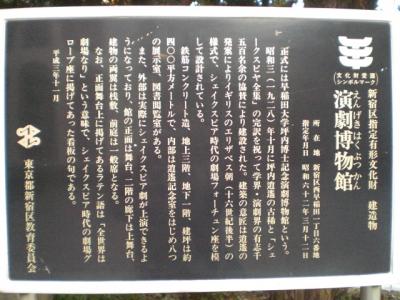 文化財愛護
シンボルマーク
新宿区指定有形文化財 建造物
えんげきはくぶつかん
演劇博物館
所在地 新宿区西早稲田一丁目六番地
指定年月日 昭和六十二年三月十二日
正式には早稲田大学坪内博士記念演劇博物館という。
昭和三(一九二八)年十月に坪内逍遥の古稀と「シェ
ークスピヤ全集」の完訳を祝って学界・演劇界の有志千
五百名余の協賛により建設された。建築の意匠は逍遥の
発案によりイギリスのエリザベス朝(十六世紀後半)の
様式で、シェイクスピア時代の劇場フォーチュン座を模
して設計されている。
鉄筋コンクリート造、地上三階、地下一階、建坪は約
四〇〇平方メートルで、内部は逍遥記念室をはじめ八つ
の展示室、図書閲覧室がある。
また、外部は実際にシェイクスピア劇が上演できるよ
うになっており、館の正面は舞台、二階の廊下は上舞台、
建物の両翼は桟敷、前庭は一般席となる。
なお、正面舞台上に掲げてあるラテン語は「全世界は
劇場なり」という意味で、シェイクスピア時代の劇場グ
ローブ座に掲げてあった看板の句である。
平成三年十一月
東京都新宿区教育委員会